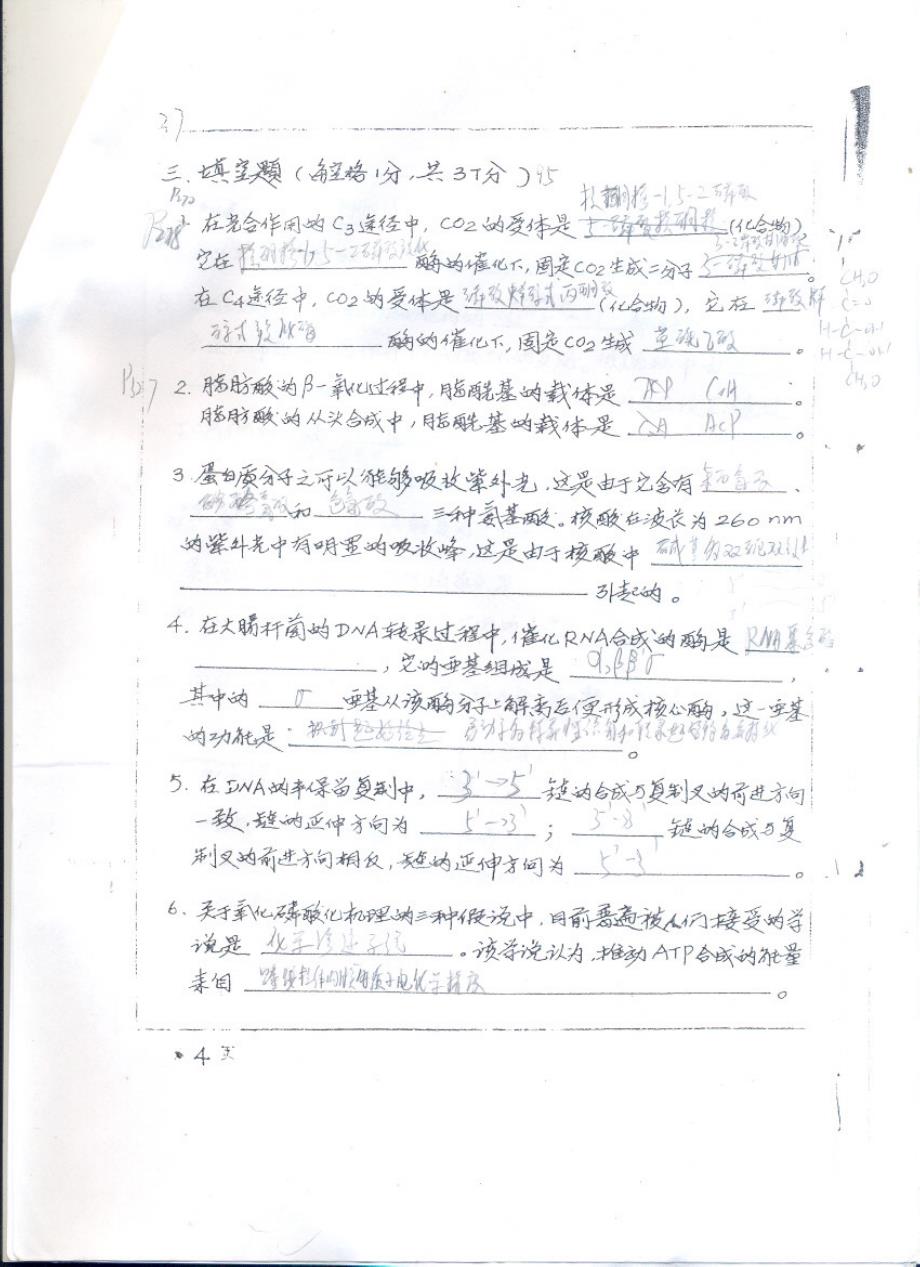 37
三、填空题（每空格1分，共3T分）95
P270
核酮糖-1,5-二磷酸
1. 在光合作用的C3途径中，CO2的受体是 5-磷酸核酮糖 (化合物)，
它在 核酮糖-1,5-二磷酸羧化 酶的催化下，固定CO2生成二分子
在C4途径中，CO2的受体是 磷酸烯醇式丙酮酸 (化合物)，它在 磷酸烯
醇式羧化酶 酶的催化下，固定CO2生成 草酰乙酸 。
2. 脂肪酸的β-氧化过程中，脂酰基的载体是 ACP CoH 。
脂肪酸的从头合成中，脂酰基的载体是 CoA ACP 。
3. 蛋白质分子之可以能够吸收紫外光，这是由于它含有 、
和 色氨酸 三种氨基酸。核酸在波长为260nm
的紫外光中有明显的吸收峰，这是由于核酸中
引起的。
4. 在大肠杆菌的DNA转录过程中，催化RNA合成的酶是 RNA聚合酶
，它的亚基组成是 α2ββ'σ ，
其中的 σ 亚基从该酶分子上解离后便形成核心酶，这一亚基
的功能是 。
5. 在DNA的半保留复制中， 3'→5' 链的合成与复制叉的前进方向
一致，链的延伸方向为 5'→3' ； 5'-3' 链的合成与复
制叉的前进方向相反，链的延伸方向为 5'-3' 。
6. 关于氧化磷酸化机理的三种假说中，目前普遍被人们接受的学
说是 化学渗透学说 。该学说认为，推动ATP合成的能量
来自 。
4 页
CH2O
C=O
H-C-OH
H-C-OH
CH2O